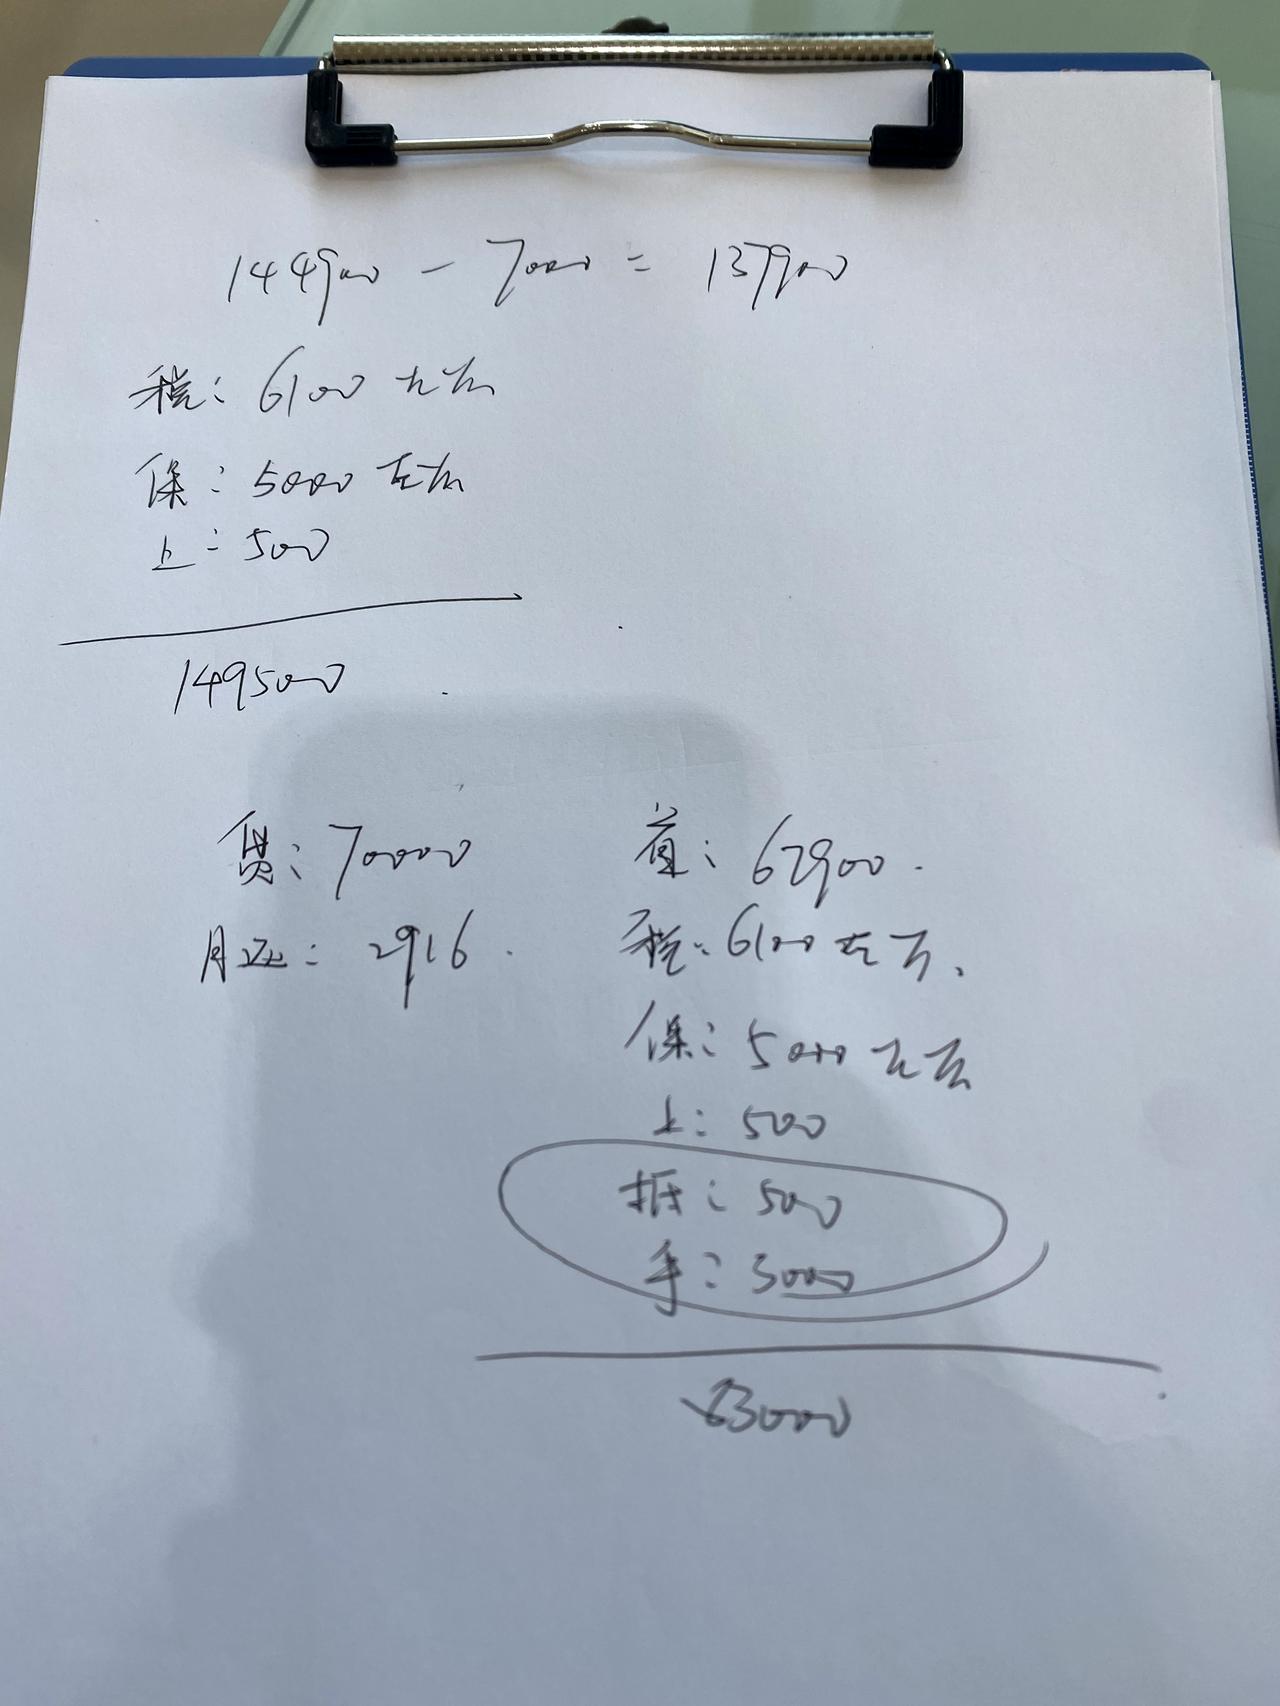 144900 - 7000 = 137900
税: 6100 左右
保: 5000 左右
上: 500
149500
贷: 70000
月还: 2916
首: 67900
税: 6100 左右
保: 5000 左右
上: 500
抵: 500
手: 3000
83000